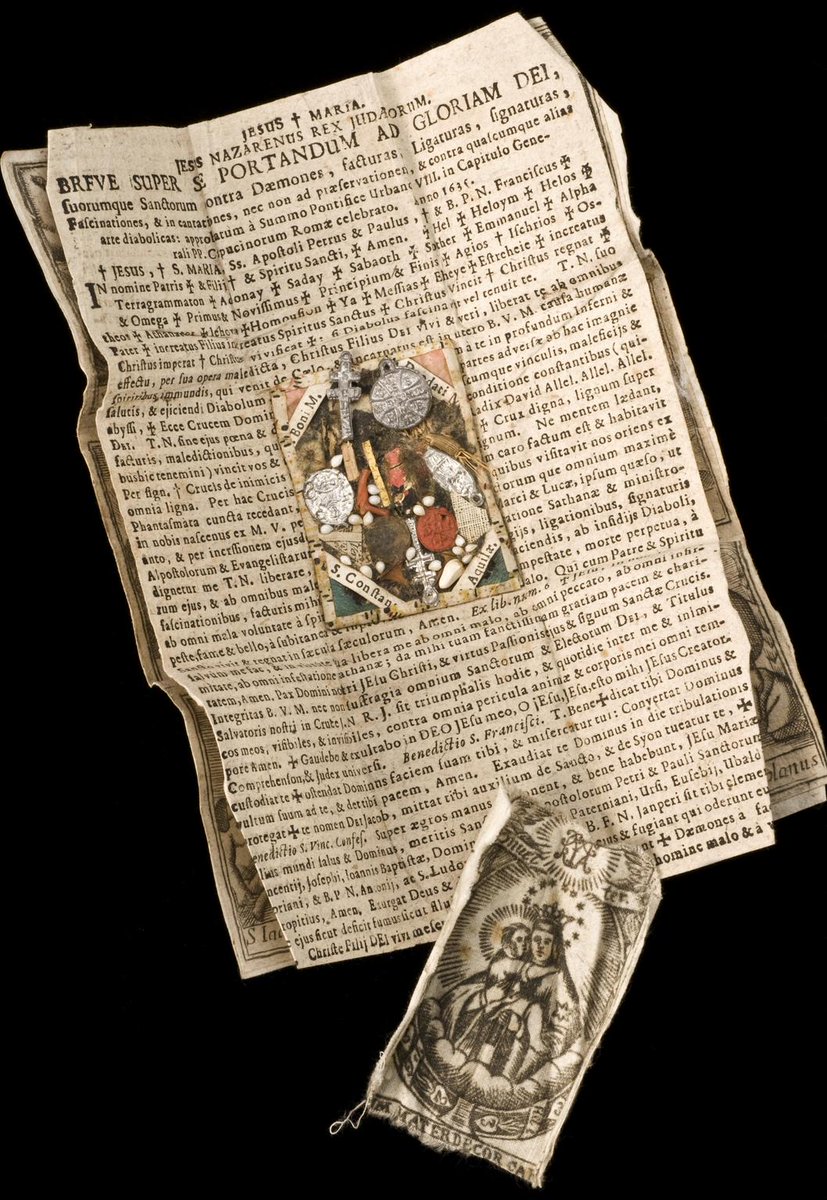 JESUS ✝ MARIA.
JESUS NAZARENUS REX JUDÆORUM.
BREVE SUPER S PORTANDUM AD GLORIAM DEI,
suorumque Sanctorum contra Dæmones, facturas, Ligaturas, signaturas,
Fascinationes, & incantationes, nec non ad præservationem, & contra qualcumque alias
arte diabolicas: approb à Summo Pontifice Urbano VIII. in Capitulo Gene-
rali PP. Capucinorum Romæ celebrato Anno 1635.
✝ JESUS, ✝ S. MARIA, Ss. Apostoli Petrus & Paulus, ✝ & B. P. N. Franciscus ✠
IN nomine Patris ✠ & Filij ✝ & Spiritu Sancti, ✠ Amen. ✝ Hel ✠ Heloym ✠ Helos ✠
Terragrammaton ✠ Adonay ✠ Saday ✠ Sabaoth ✠ Sother ✠ Emmanuel ✠ Alpha
& Omega ✠ Primus & Novissimus ✠ Principium & Finis ✠ Agios ✝ Ischrios ✠ Os-
theos ✠ Athanatos ✠ Homousion ✠ Ya ✠ Messias ✠ Eheye ✠ Estreheie ✠ increatus
Pater ✠ increatus Filius increatus Spiritus Sanctus ✠ Christus Vincit ✝ Christus regnat ✠
Christus imperat ✝ Christus vivificat ✠: si Diabolus fascina vel tenuit te. T. N. suo
effectu, per sua opera maledicta, Christus Filius DEI vivi & veri, liberat te ab omnibus
spiritibus immundis, qui venit de Cælo & incarnatus est in utero B. V. M. causa humanæ
salutis, & ejiciendi Diabolum à te in profundum Inferni &
abyssi, ✠ Ecce Crucem Domi partes adversæ ab hac imagine
DEI. T. N. sine ejus pœna & cumque vinculis, maleficijs &
facturis, maledictionibus, qu conditione constantibus (qui-
busbic tenemini) vincit vos & adix David Allel. Allel. Allel.
Per sign, ✝ Crucis de inimicis ✠ Crux digna, lignum super
omnia ligna. Per hac Crucis gnum. Ne mentem lædant,
Phantasmata cuncta recedant caro factum est & habitavit
in nobis nascens ex M. V. pe quibus visitavit nos oriens ex
anto, & per incrssionem ejusd orum que omnium maximè
Alpostolorum & Evangelistarum arci & Lucæ, ipsum quæso, ut
dignetur me T. N. liberare, atione Sathanæ & ministro-
rum ejus, & ab omnibus male ijs, ligationibus, signaturis
fascinationibus, facturis mihi ciendis, ab insidijs Diaboli,
ab omni mala voluntate à spi pestate, morte perpetua, à
peste, fame & bello, à subitanea alo. Qui cum Patre & Spiritu
Sancto vivit & regnat in sæcula sæculorum, Amen. Ex lib. num.
salvum me fac, & libera me ab omni malo, ab omni peccato, ab omni infir-
mitate, ab omni infestatione Sathanæ; da mihi tuam sanctissimam gratiam pacem & chari-
tatem, Amen. Pax Domini nostri JEsu Ghristi, & virtus Passionis ejus & signum Sanctæ Crucis.
Integritas B. V. M. nec non suffragia omnium Sanctorum & Electorum DEI, & Titulus
Salvatoris nostri in Cruce I. N. R. J. sit triumphalis hodie, & quotidie inter me & inimi-
cos meos, visibiles, & invisibiles, contra omnia pericula animæ & corporis mei omni tem-
pore Amen. ✠ Gaudebo & exultabo in DEO JEsu meo, O JEsu, JEsu, esto mihi JEsus Creator,
Comprehensor, & Judex universi. Benedictio S. Francisci. T. Bene✠dicat tibi Dominus &
custodiat te ✠ ostendat Dominus faciem suam tibi, & misereatur tui: Convertat Dominus
vultum suum ad te, & det tibi pacem, Amen. Exaudiat te Dominus in die tribulationis
rotegat ✠ te nomen Dei Jacob, mittat tibi auxilium de Sancto, & de Syon tueatur te, ✠
enedictio S. Vinc. Confes. Super ægros manus nent, & bene habebunt, JEsu Mariæ
lius mundi salus & Dominus, meritis Sanc postolorum Petri & Pauli Sanctorum
ncentij, Josephi, Joannis Baptistæ, Domin Paterniani, Ursi, Eusebij, Ubald
priani, & B. P. N. Antonij, at S. Ludo B. F. N. Janperi sit tibi cleme
opitius, Amen. Exurgat Deus & us & fugiant qui oderunt eu
ejus sicut deficit fumus ficut flu nt ✠ Dæmones a fac
Christe Filij DEI vivi misere homine malo & à
Boni M.
Deodati M
S. Constan
Aquilæ
S Ia
olanus
MATER DECOR CAR